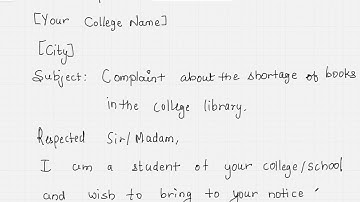 [Your College Name]
[City]
Subject: Complaint about the shortage of books
in the college library.
Respected Sir/Madam,
I am a student of your college/school
and wish to bring to your notice